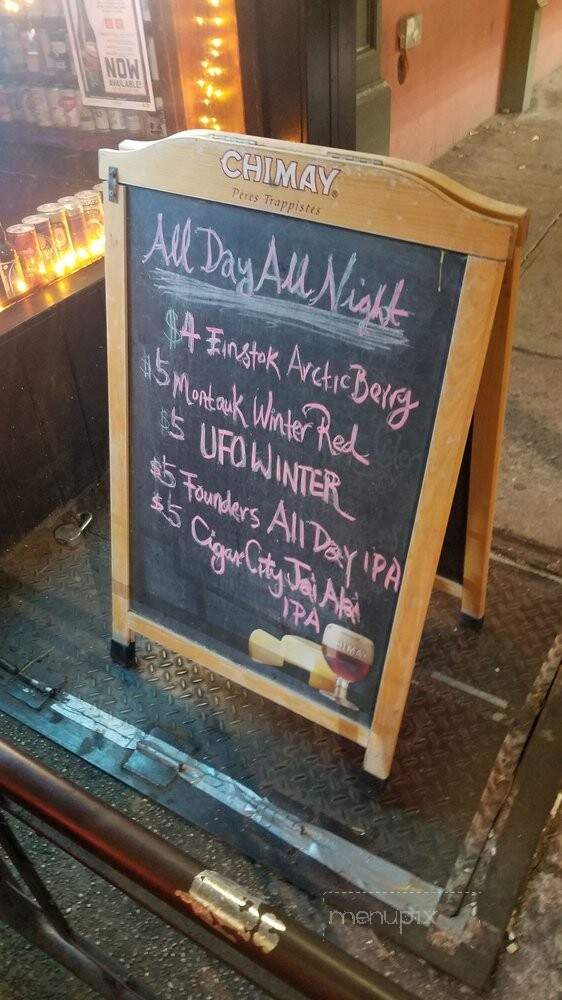 NOW
AVAILABLE!
CHIMAY®
Pères Trappistes
All Day All Night
$4 Einstok Arctic Berry
$5 Montauk Winter Red
$5 UFO WINTER
$5 Founders All Day IPA
$5 Cigar City Jai Alai
IPA
CHIMAY
menupix